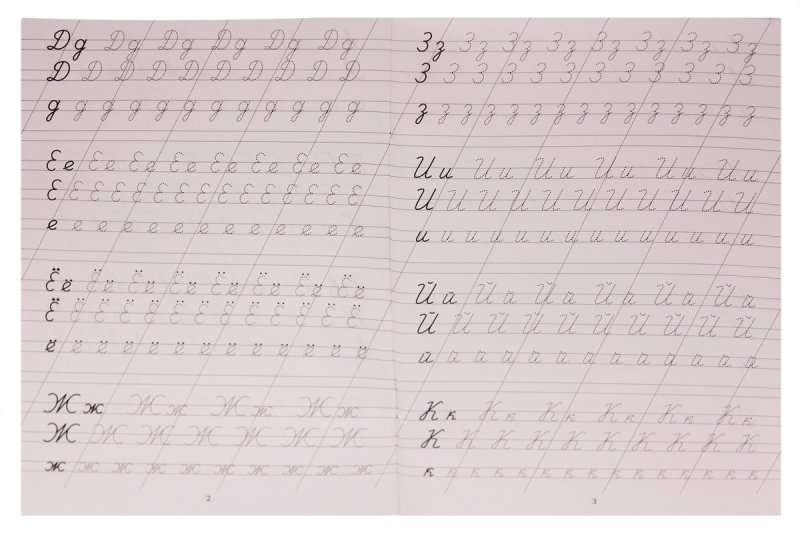 Дд Дд Дд Дд Дд Дд
Д Д Д Д Д Д Д Д Д Д
д д д д д д д д д д д д
Ее Ее Ее Ее Ее Ее Ее Ее
Е Е Е Е Е Е Е Е Е Е Е Е Е Е Е
е е е е е е е е е е е е е
Ёё Ёё Ёё Ёё Ёё Ёё Ёё Ёё
Ё Ё Ё Ё Ё Ё Ё Ё Ё Ё Ё Ё Ё
ё ё ё ё ё ё ё ё ё ё ё ё ё
Жж Жж Жж Жж
Ж Ж Ж Ж Ж Ж Ж
ж ж ж ж ж ж ж ж ж ж
2
Зз Зз Зз Зз Зз Зз Зз Зз
З З З З З З З З З З З З
з з з з з з з з з з з з з з з
Ии Ии Ии Ии Ии Ии
И И И И И И И И И И И
и и и и и и и и и и и и и и
Йй Йй Йй Йй Йй Йй
Й Й Й Й Й Й Й Й Й Й
й й й й й й й й й й й й й
Кк Кк Кк Кк Кк Кк
К К К К К К К К К К
к к к к к к к к к к к к к к к
3